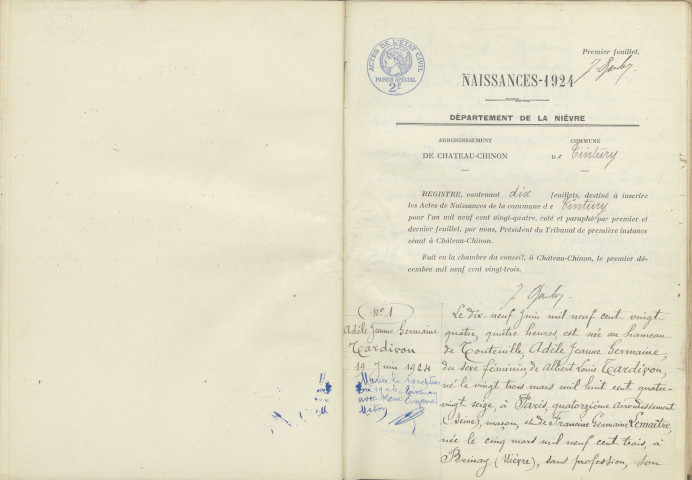 Premier feuillet.
ACTES DE L'ÉTAT CIVIL
PAPIER SPÉCIAL
2F
NAISSANCES-1924
DÉPARTEMENT DE LA NIÈVRE
ARRONDISSEMENT
DE CHATEAU-CHINON
COMMUNE
DE Tintury
REGISTRE, contenant dix feuillets, destiné à inscrire
les Actes de Naissances de la commune de Tintury
pour l'an mil neuf cent vingt-quatre, coté et paraphé par premier et
dernier feuillet, par nous, Président du Tribunal de première instance
séant à Château-Chinon.
Fait en la chambre du conseil, à Château-Chinon, le premier dé-
cembre mil neuf cent vingt-trois.
N° 1
Adèle Jeanne Germaine
Tardivon
19 Juin 1924
Mariée le
avec
Le dix-neuf Juin mil neuf cent vingt
quatre, quatre heures, est née au hameau
de Adèle Jeanne Germaine,
du sexe féminin, de Albert Louis Tardivon,
né le vingt trois mars mil huit cent quatre-
vingt seize, à Paris, quatorzième arrondissement
(Seine), maçon, et de Francine Germaine Lemaître,
née le cinq mars mil neuf cent trois, à
(Nièvre), sans profession, son